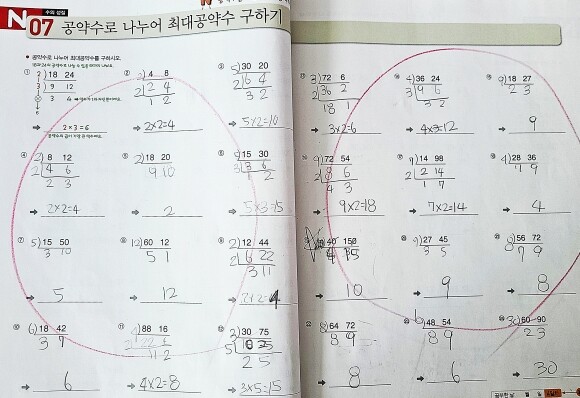 N 수의 성질
07 공약수로 나누어 최대공약수 구하기
● 공약수로 나누어 최대공약수를 구하시오.
① 2) 18 24
3) 9 12
3 4
➔ 2×3=6
② 2) 4 8
2) 2 4
1 2
➔ 2×2=4
③ 5) 30 20
2) 6 4
3 2
➔ 5×2=10
④ 2) 8 12
2) 4 6
2 3
➔ 2×2=4
⑤ 2) 18 20
9 10
➔ 2
⑥ 15 30
➔ 5×3=15
⑦ 5) 15 50
3 10
➔ 5
⑧ 12) 60 12
5 1
➔ 12
⑨ 2) 12 44
2) 6 22
3 11
➔ 2×2=4
⑩ 6) 18 42
3 7
➔ 6
⑪ 88 16
11 2
➔ 4×2=8
⑫ 3) 30 75
5) 10 25
2 5
➔ 3×5=15
3) 72 6
2) 36 2
18 1
➔ 3×2=6
4) 36 24
3) 9 6
3 2
➔ 4×3=12
9) 18 27
2 3
➔ 9
9) 72 54
2) 8 6
4 3
➔ 9×2=18
7) 14 98
2) 2 14
1 7
➔ 7×2=14
4) 28 36
7 9
➔ 4
40 150
4 15
➔ 10
9) 27 45
3 5
➔ 9
8) 56 72
7 9
➔ 8
8) 64 72
8 9
➔ 8
6) 48 54
8 9
➔ 6
30) 60 90
2 3
➔ 30
공부한 날 월 일